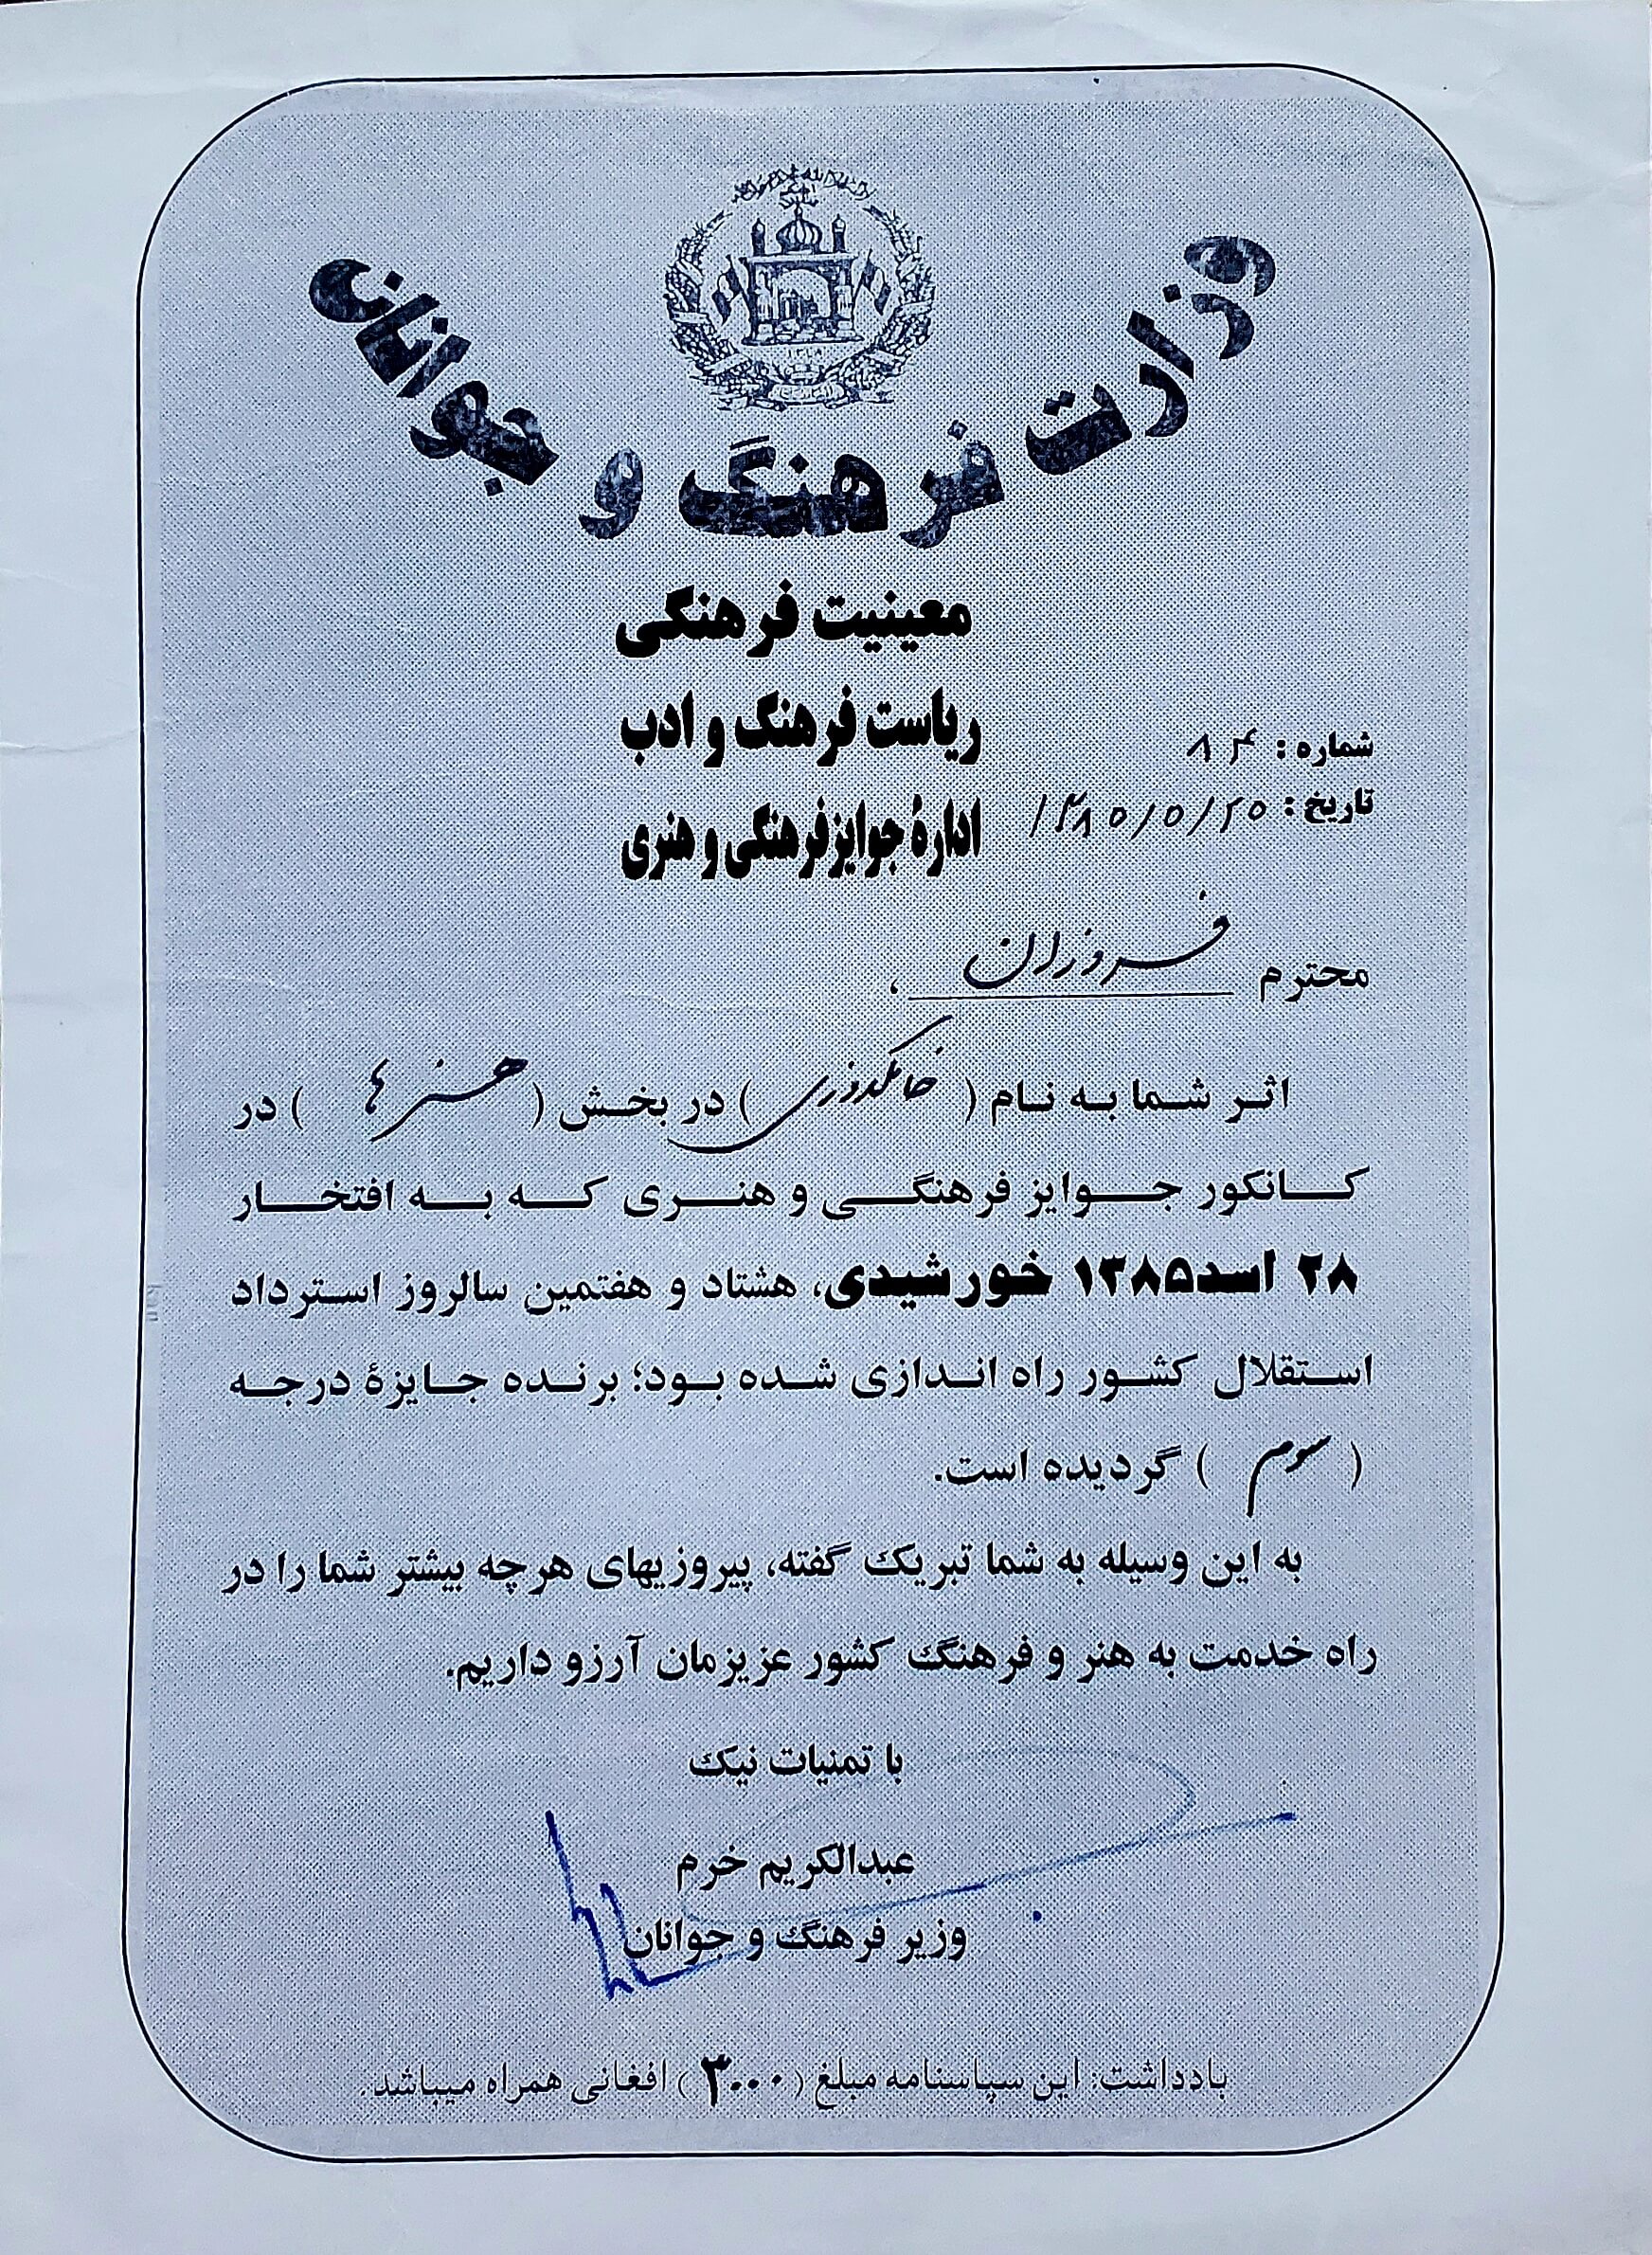 وزارت فرهنگ و جوانان
معینیت فرهنگی
ریاست فرهنگ و ادب
ادارهٔ جوایز فرهنگی و هنری
شماره : ۸۴
تاریخ : ۱۳۸۵/۵/۲۵
محترم فروزان ،
اثر شما به نام ( خامکدوزی ) در بخش ( هنرها ) در
کانکور جوایز فرهنگی و هنری که به افتخار
۲۸ اسد۱۳۸۵ خورشیدی، هشتاد و هفتمین سالروز استرداد
استقلال کشور راه اندازی شده بود؛ برنده جایزهٔ درجه
( سوم ) گردیده است.
به این وسیله به شما تبریک گفته، پیروزیهای هرچه بیشتر شما را در
راه خدمت به هنر و فرهنگ کشور عزیزمان آرزو داریم.
با تمنیات نیک
عبدالکریم خرم
وزیر فرهنگ و جوانان
یادداشت: این سپاسنامه مبلغ (۳۰۰۰) افغانی همراه میباشد.